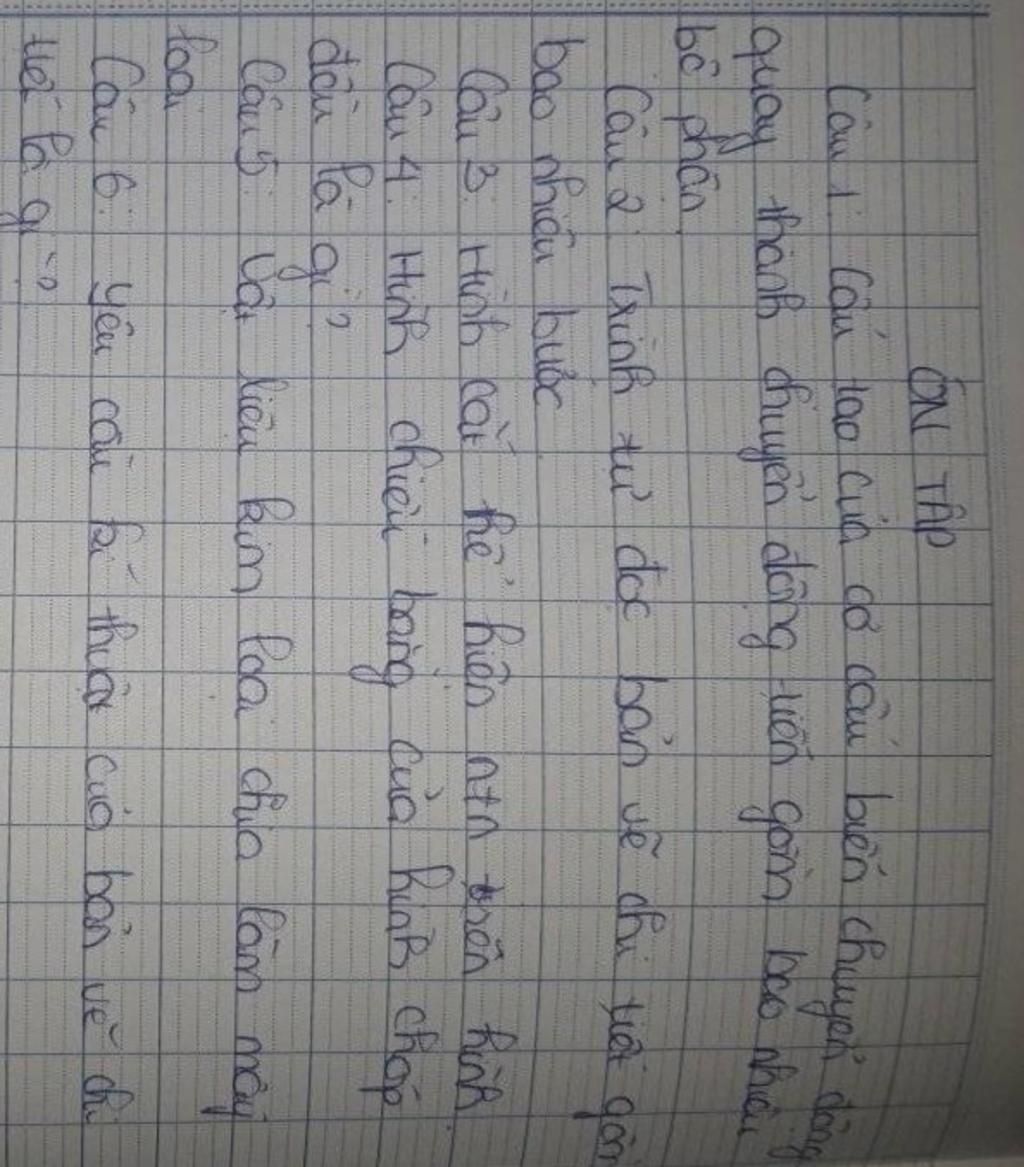 ÔN TẬP
Câu 1: Cấu tạo của cơ cấu biến chuyển động
quay thành chuyển động tiến gồm bao nhiêu
bộ phận
Câu 2: Trình tự đọc bản vẽ chi tiết gồm
bao nhiêu bước
Câu 3: Hình cắt thể hiện ntn trên hình
Câu 4: Hình chiếu bằng của hình chóp
đều là gì?
Câu 5: Vật liệu kim loại chia làm mấy
loại
Câu 6: yêu cầu kĩ thuật của bản vẽ chi
tiết là gì?